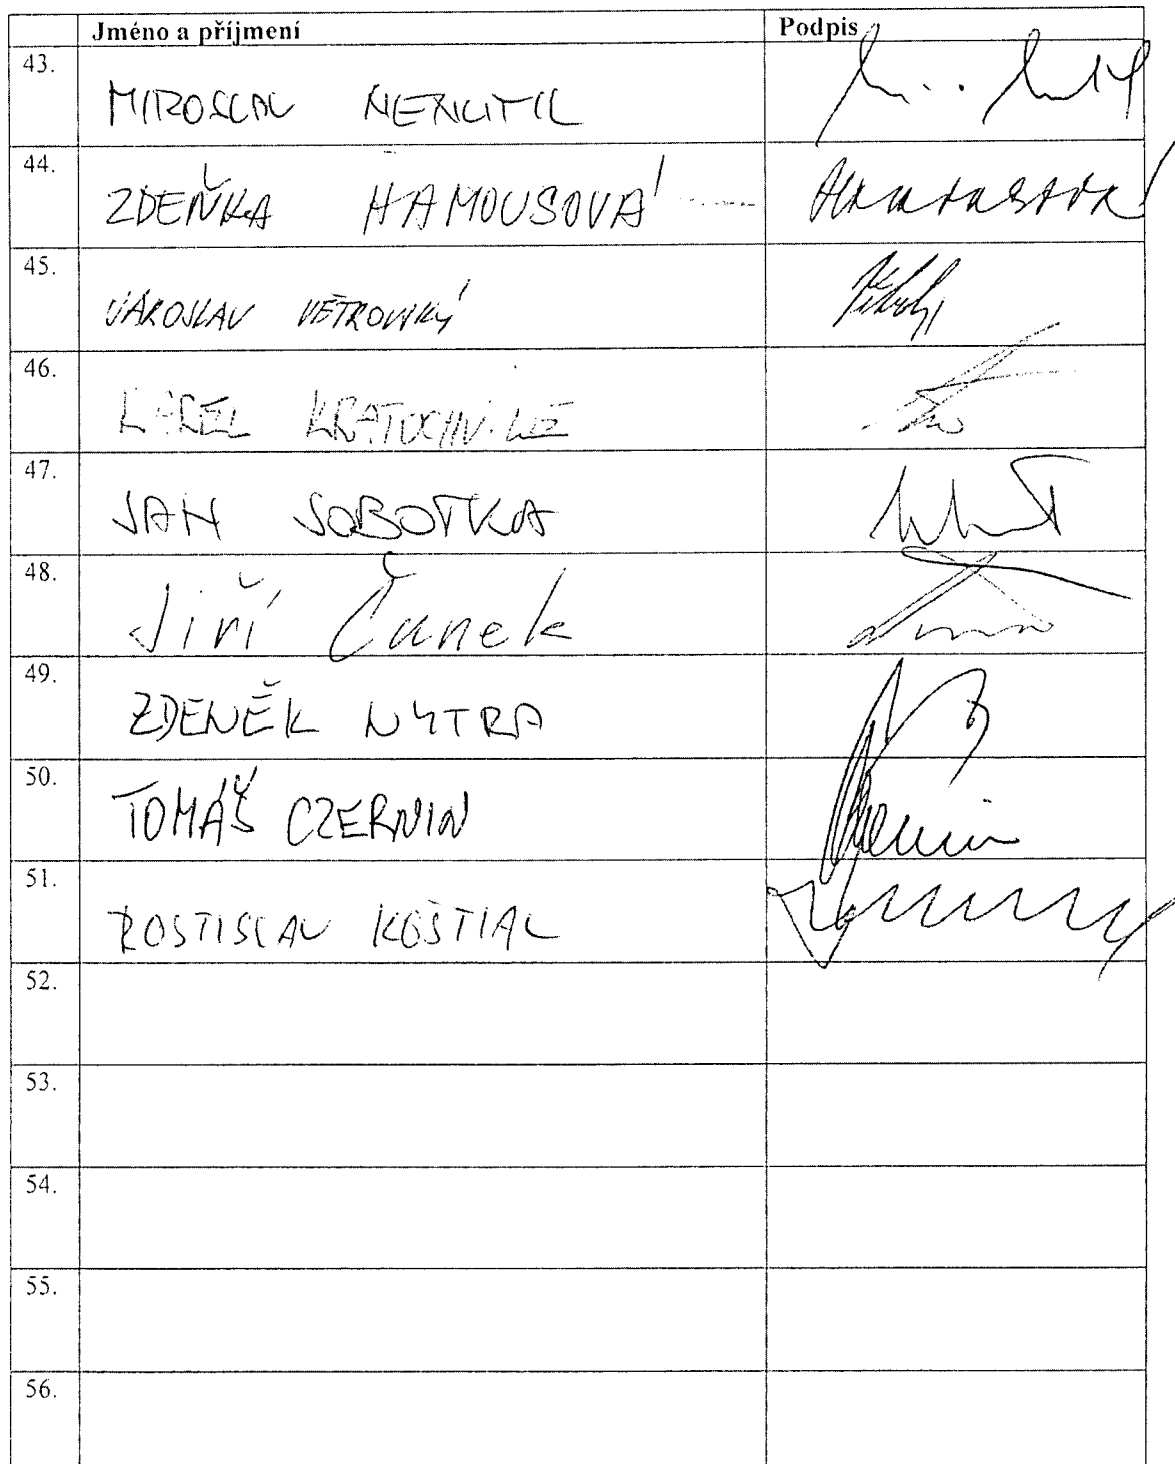 Jméno a příjmení Podpis
43. MIROSLAV NENUTIL
44. ZDEŇKA HAMOUSOVÁ
45. JAROSLAV VĚTROVSKÝ
46. KAREL KRATOCHVÍLE
47. JAN SOBOTKA
48. Jiří Čunek
49. ZDENĚK NYTRA
50. TOMÁŠ CZERNIN
51. ROSTISLAV KOŠTIAL
52.
53.
54.
55.
56.